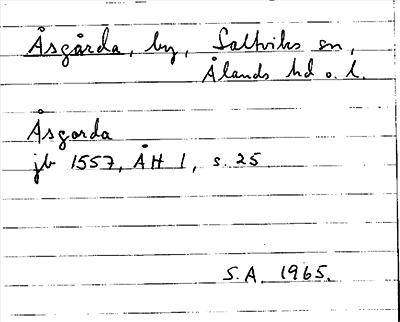 Åsgårda, by, Saltviks sn,
Ålands hd o. l.
Åsgorda
jb 1557, ÅH 1, s. 25
S.A. 1965.